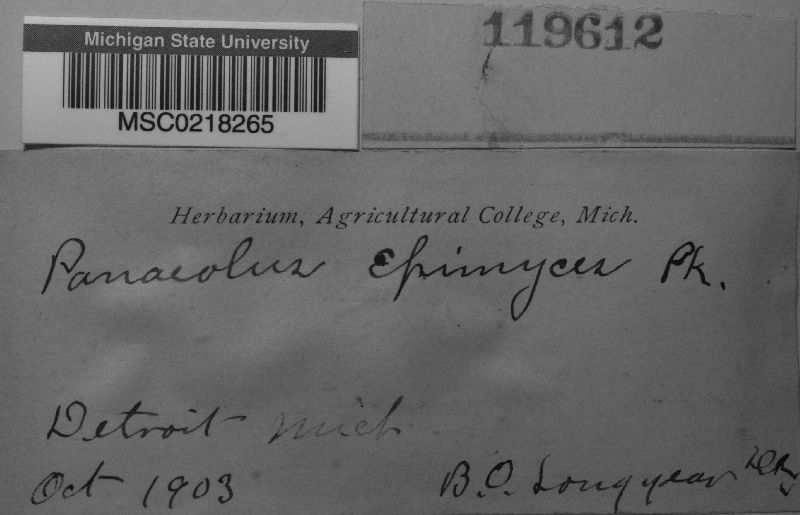 Michigan State University
MSC0218265
119612
Herbarium, Agricultural College, Mich.
Panaeolus Epimyces Pk.
Detroit Mich
Oct 1903
B.O. Longyear